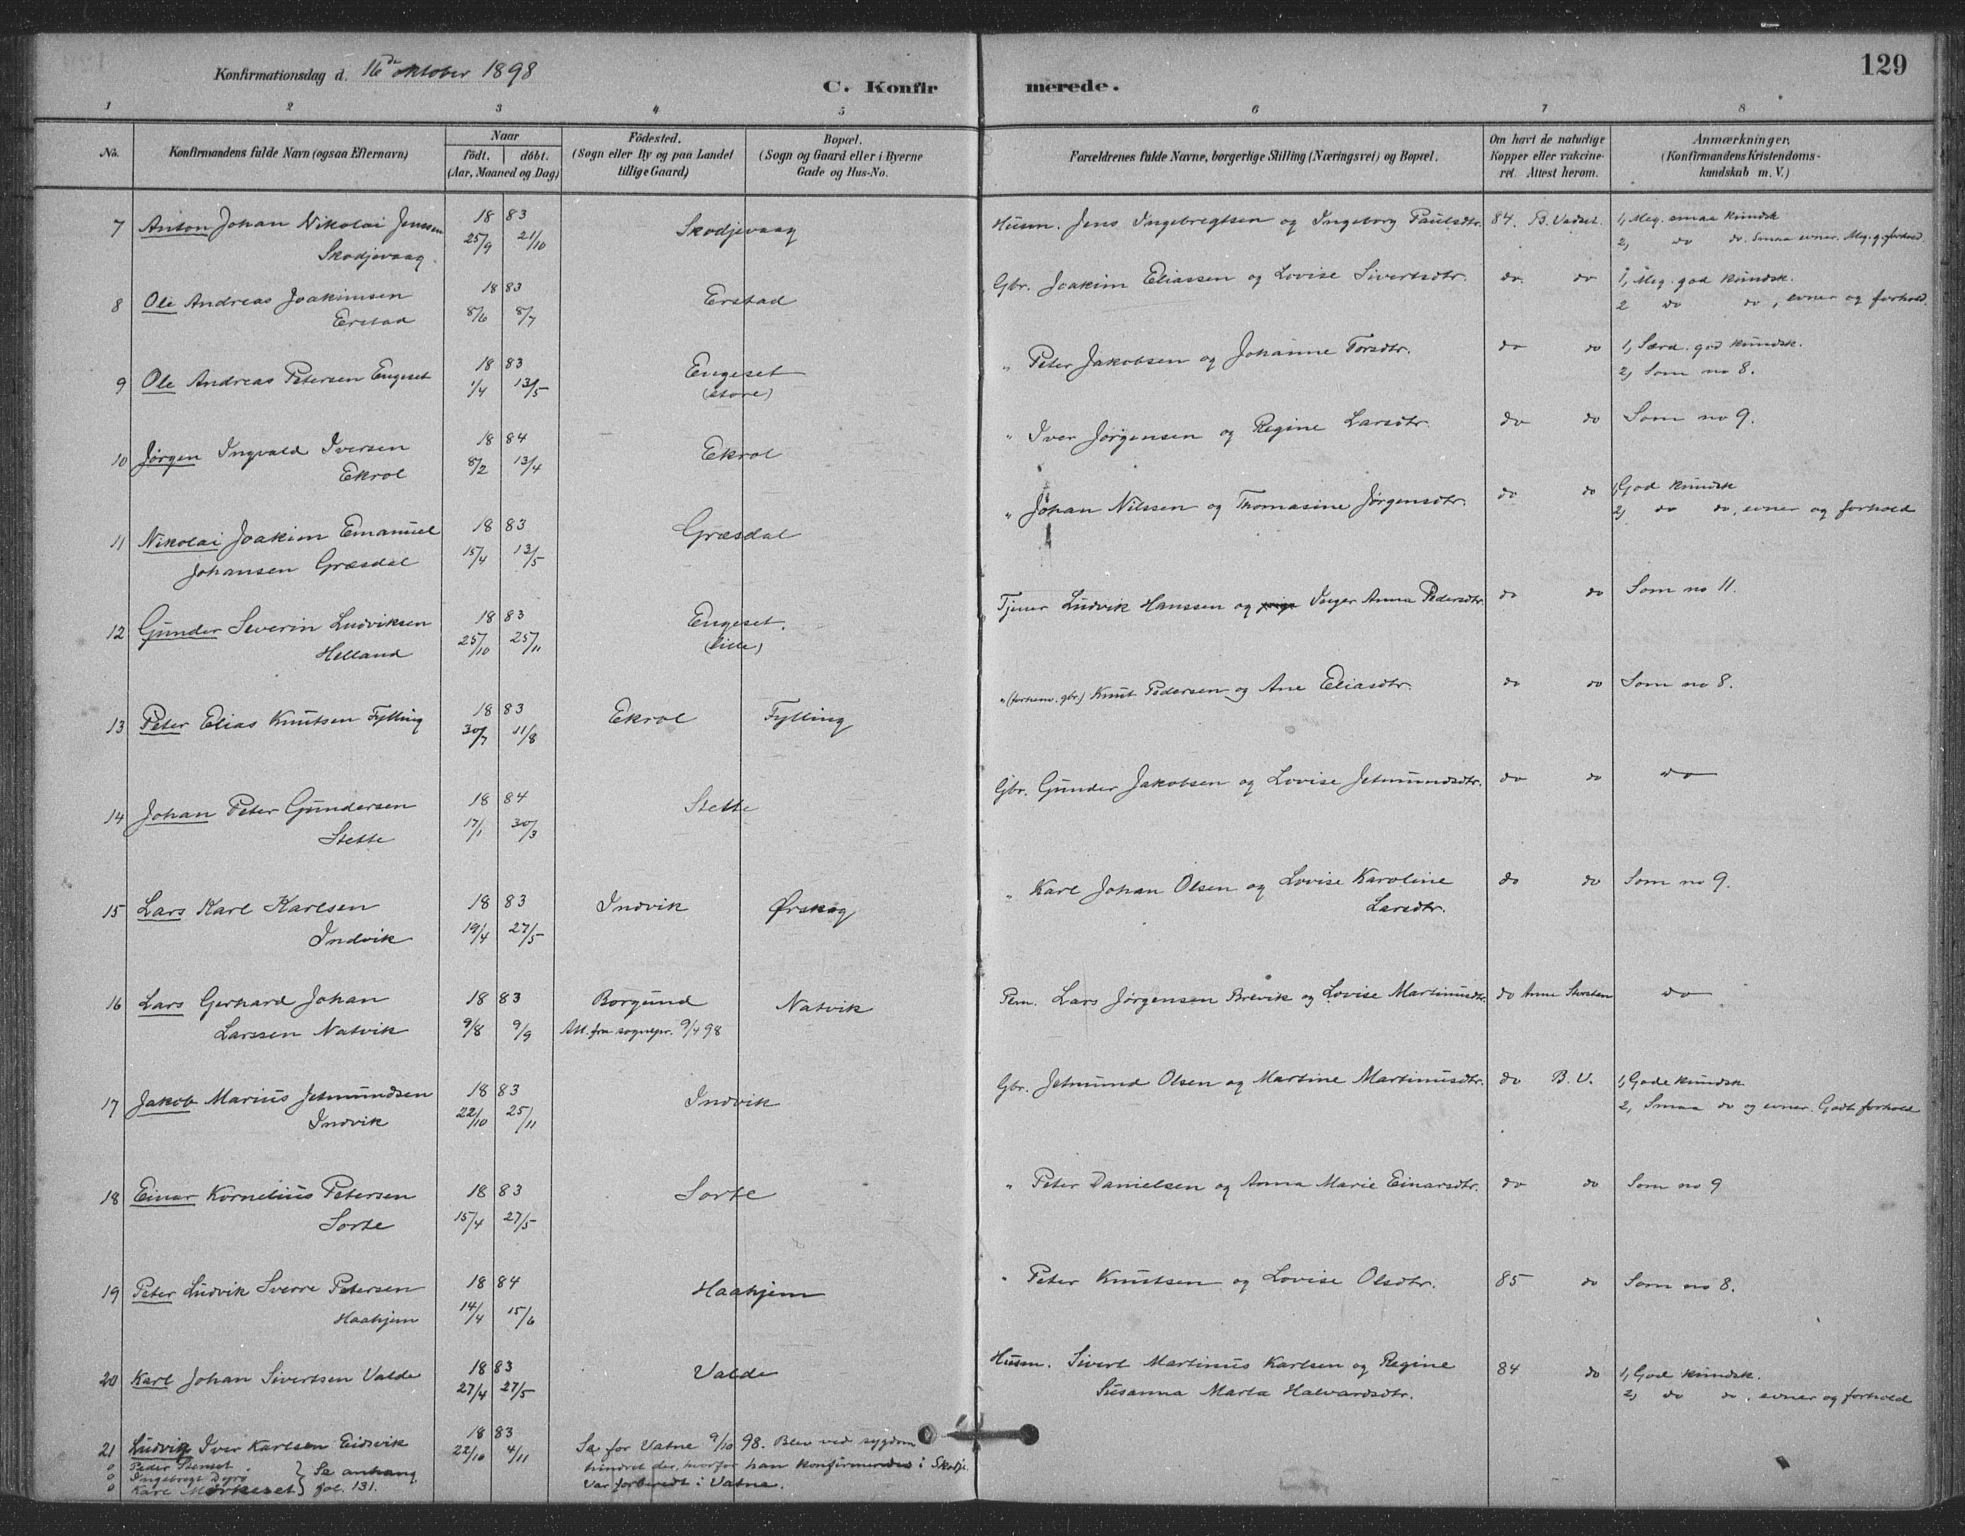 Konfirmationsdag d. 16de oktober 1898
C. Konfir merede.
129
1 2 3 4 5 6 7 8
No.
Konfirmandens fulde Navn (ogsaa Efternavn)
Naar
födt. döbt.
(Aar, Maaned og Dag)
Födested.
(Sogn eller By og paa Landet
tillige Gaard)
Bopæl.
(Sogn og Gaard eller i Byerne
Gade og Hus-No.
Forældrenes fulde Navne, borgerlige Stilling (Næringsvei) og Bopæl.
Om havt de naturlige
Kopper eller vakcine-
ret. Attest herom.
Anmærkninger,
(Konfirmandens Kristendoms-
kundskab m. V.)
7 Anton Johan Nikolai Jenssen 18 83 Skodjevaag Husm. Jens Ingebregtsen og Ingeborg Paulsdtr. 84. B. Vadset. 1, Meg. smaa kundsk
Skodjevaag. 25/9 21/10 2, do do. Smaa evner. Meg. g. forhold.
8 Ole Andreas Joakimsen 18 83 Erstad Gbr. Joakim Eliassen og Lovise Sivertsdtr. do. do 1, Meg. god kundsk.
Erstad 8/6 8/7 2 do do, evner og forhold.
9 Ole Andreas Petersen Engeset 18 83 Engeset " Peter Jakobsen og Johanne Torsdtr. do do 1, Særd. god kundsk.
1/4 13/5 (store) 2, Som no 8.
10 Jørgen Ingvald Iversen 18 84 Ekrol " Iver Jørgensen og Regine Larsdtr. do do Som no 9.
Ekrol 8/2 13/4
11 Nikolai Joakim Emanuel 18 83 Græsdal " Johan Nilssen og Thomasine Jørgensdtr. do do 1, God kundsk
Johansen Græsdal 15/4 13/5 2, do do, evner og forhold
12 Gunder Severin Ludviksen 18 83 Engeset. Tjener Ludvik Hanssen og Inger Anna Pedersdtr. do do Som no 11.
Helland 25/10 25/11 (lille)
13 Peter Elias Knutsen Fylling 18 83 Ekrol Fylling " (forhenv. gbr.) Knut Pedersen og Ane Eliasdtr. do do Som no 8.
30/7 11/8
14 Johan Peter Gundersen 18 84 Stette Gbr. Gunder Jakobsen og Lovise Jetmundsdtr. do do do
Stette 17/1 30/3
15 Lars Karl Karlsen 18 83 Indvik Ørskog " Karl Johan Olsen og Lovise Karoline do do Som no 9.
Indvik 19/4 27/5 Larsdtr.
16 Lars Gerhard Johan 18 83 Borgund Natvik Pem. Lars Jørgensen Brevik og Lovise Martinusdtr. do Anne Storsten do
Larssen Natvik 9/8 9/9 Att. fra sognepr. 9/4 98
17 Jakob Marius Jetmundsen 18 83 Indvik Gbr. Jetmund Olsen og Martine Martinusdtr. do B. V. 1, Gode kundsk
Indvik 22/10 25/11 2, Smaa do og evner. Godt forhold
18 Einar Kornelius Petersen 18 83 Sorte " Peter Danielsen og Anna Marie Einarsdtr. do do Som no 9
Sorte 15/4 27/5
19 Peter Ludvik Sverre Petersen 18 84 Haahjem " Peter Knutsen og Lovise Olsdtr. 85 do Som no 8.
Haahjem 14/4 15/6
20 Karl Johan Sivertsen Valde 18 83 Valde Husm. Sivert Martinus Karlsen og Regine 84 do 1, God kundsk.
27/4 27/5 Susanna Marta Halvardsdtr. 2, do do, evner og forhold
21 Ludvig Iver Karlsen Eidsvik 18 83 Se for Vatne 9/10 98. Blev ved sygdom
22/10 4/11 hindret der, hvorfor han konfirmeredes i Skodje.
Var forberedt i Vatne.
0 Peder Stenset
0 Ingebrogt Dyrø } Se anhang
0 Kare Mørkeset } fol. 131.